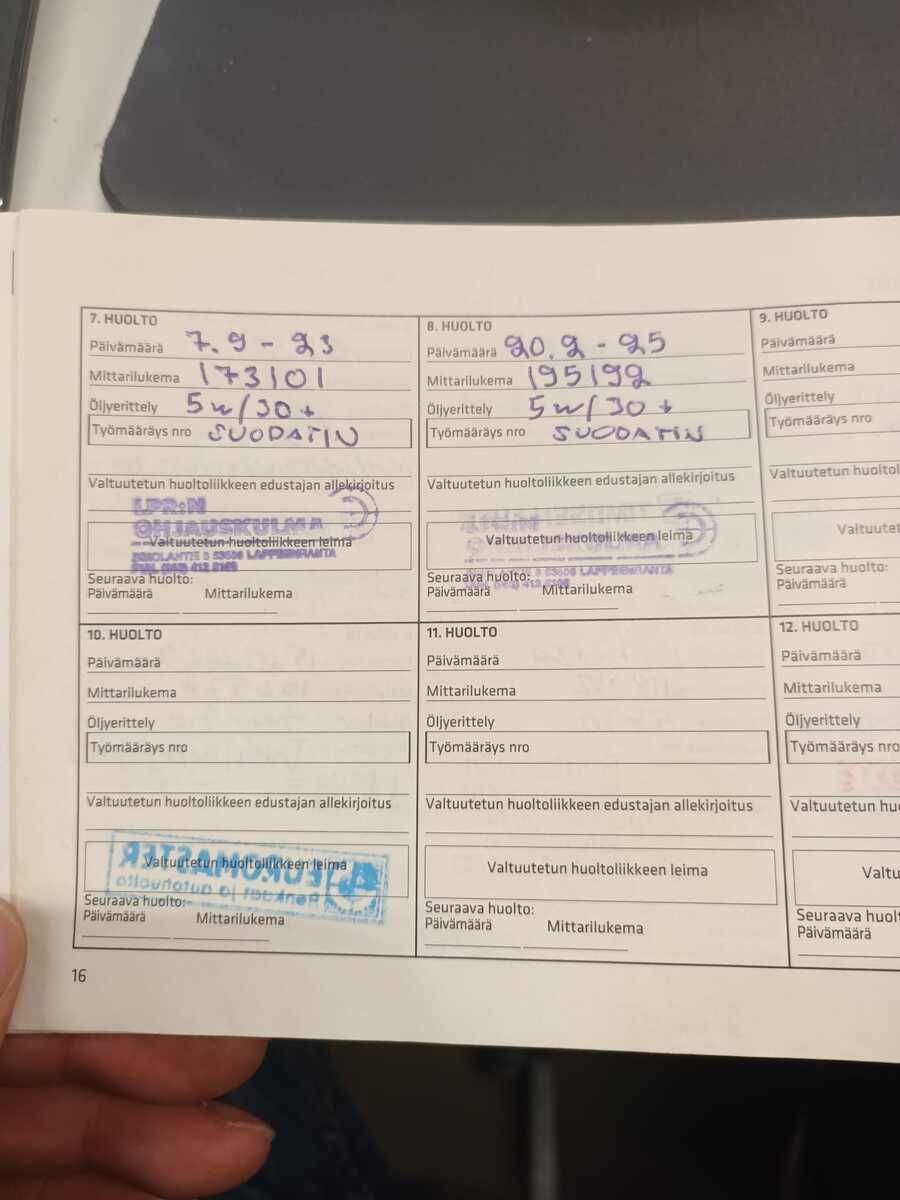 7. HUOLTO
Päivämäärä 7.9 - 23
Mittarilukema 173101
Öljyerittely 5w/30 +
Työmääräys nro SUODATIN
Valtuutetun huoltoliikkeen edustajan allekirjoitus
LPR:N
OHJAUSKULMA
Valtuutetun huoltoliikkeen leima
53500 LAPPEENRANTA
Seuraava huolto:
Päivämäärä Mittarilukema
8. HUOLTO
Päivämäärä 20.2 - 25
Mittarilukema 195192
Öljyerittely 5w/30 +
Työmääräys nro SUODATIN
Valtuutetun huoltoliikkeen edustajan allekirjoitus
Valtuutetun huoltoliikkeen leima
LAPPEENRANTA
Seuraava huolto:
Päivämäärä Mittarilukema
9. HUOLTO
Päivämäärä
Mittarilukema
Öljyerittely
Työmääräys nro
Valtuutetun huoltol
Valtuutet
Seuraava huolto:
Päivämäärä
10. HUOLTO
Päivämäärä
Mittarilukema
Öljyerittely
Työmääräys nro
Valtuutetun huoltoliikkeen edustajan allekirjoitus
Valtuutetun huoltoliikkeen leima
EUROMASTER
Renkaat ja autohuolto
Seuraava huolto:
Päivämäärä Mittarilukema
11. HUOLTO
Päivämäärä
Mittarilukema
Öljyerittely
Työmääräys nro
Valtuutetun huoltoliikkeen edustajan allekirjoitus
Valtuutetun huoltoliikkeen leima
Seuraava huolto:
Päivämäärä Mittarilukema
12. HUOLTO
Päivämäärä
Mittarilukema
Öljyerittely
Työmääräys nro
Valtuutetun hu
Valtu
Seuraava huol
Päivämäärä
16